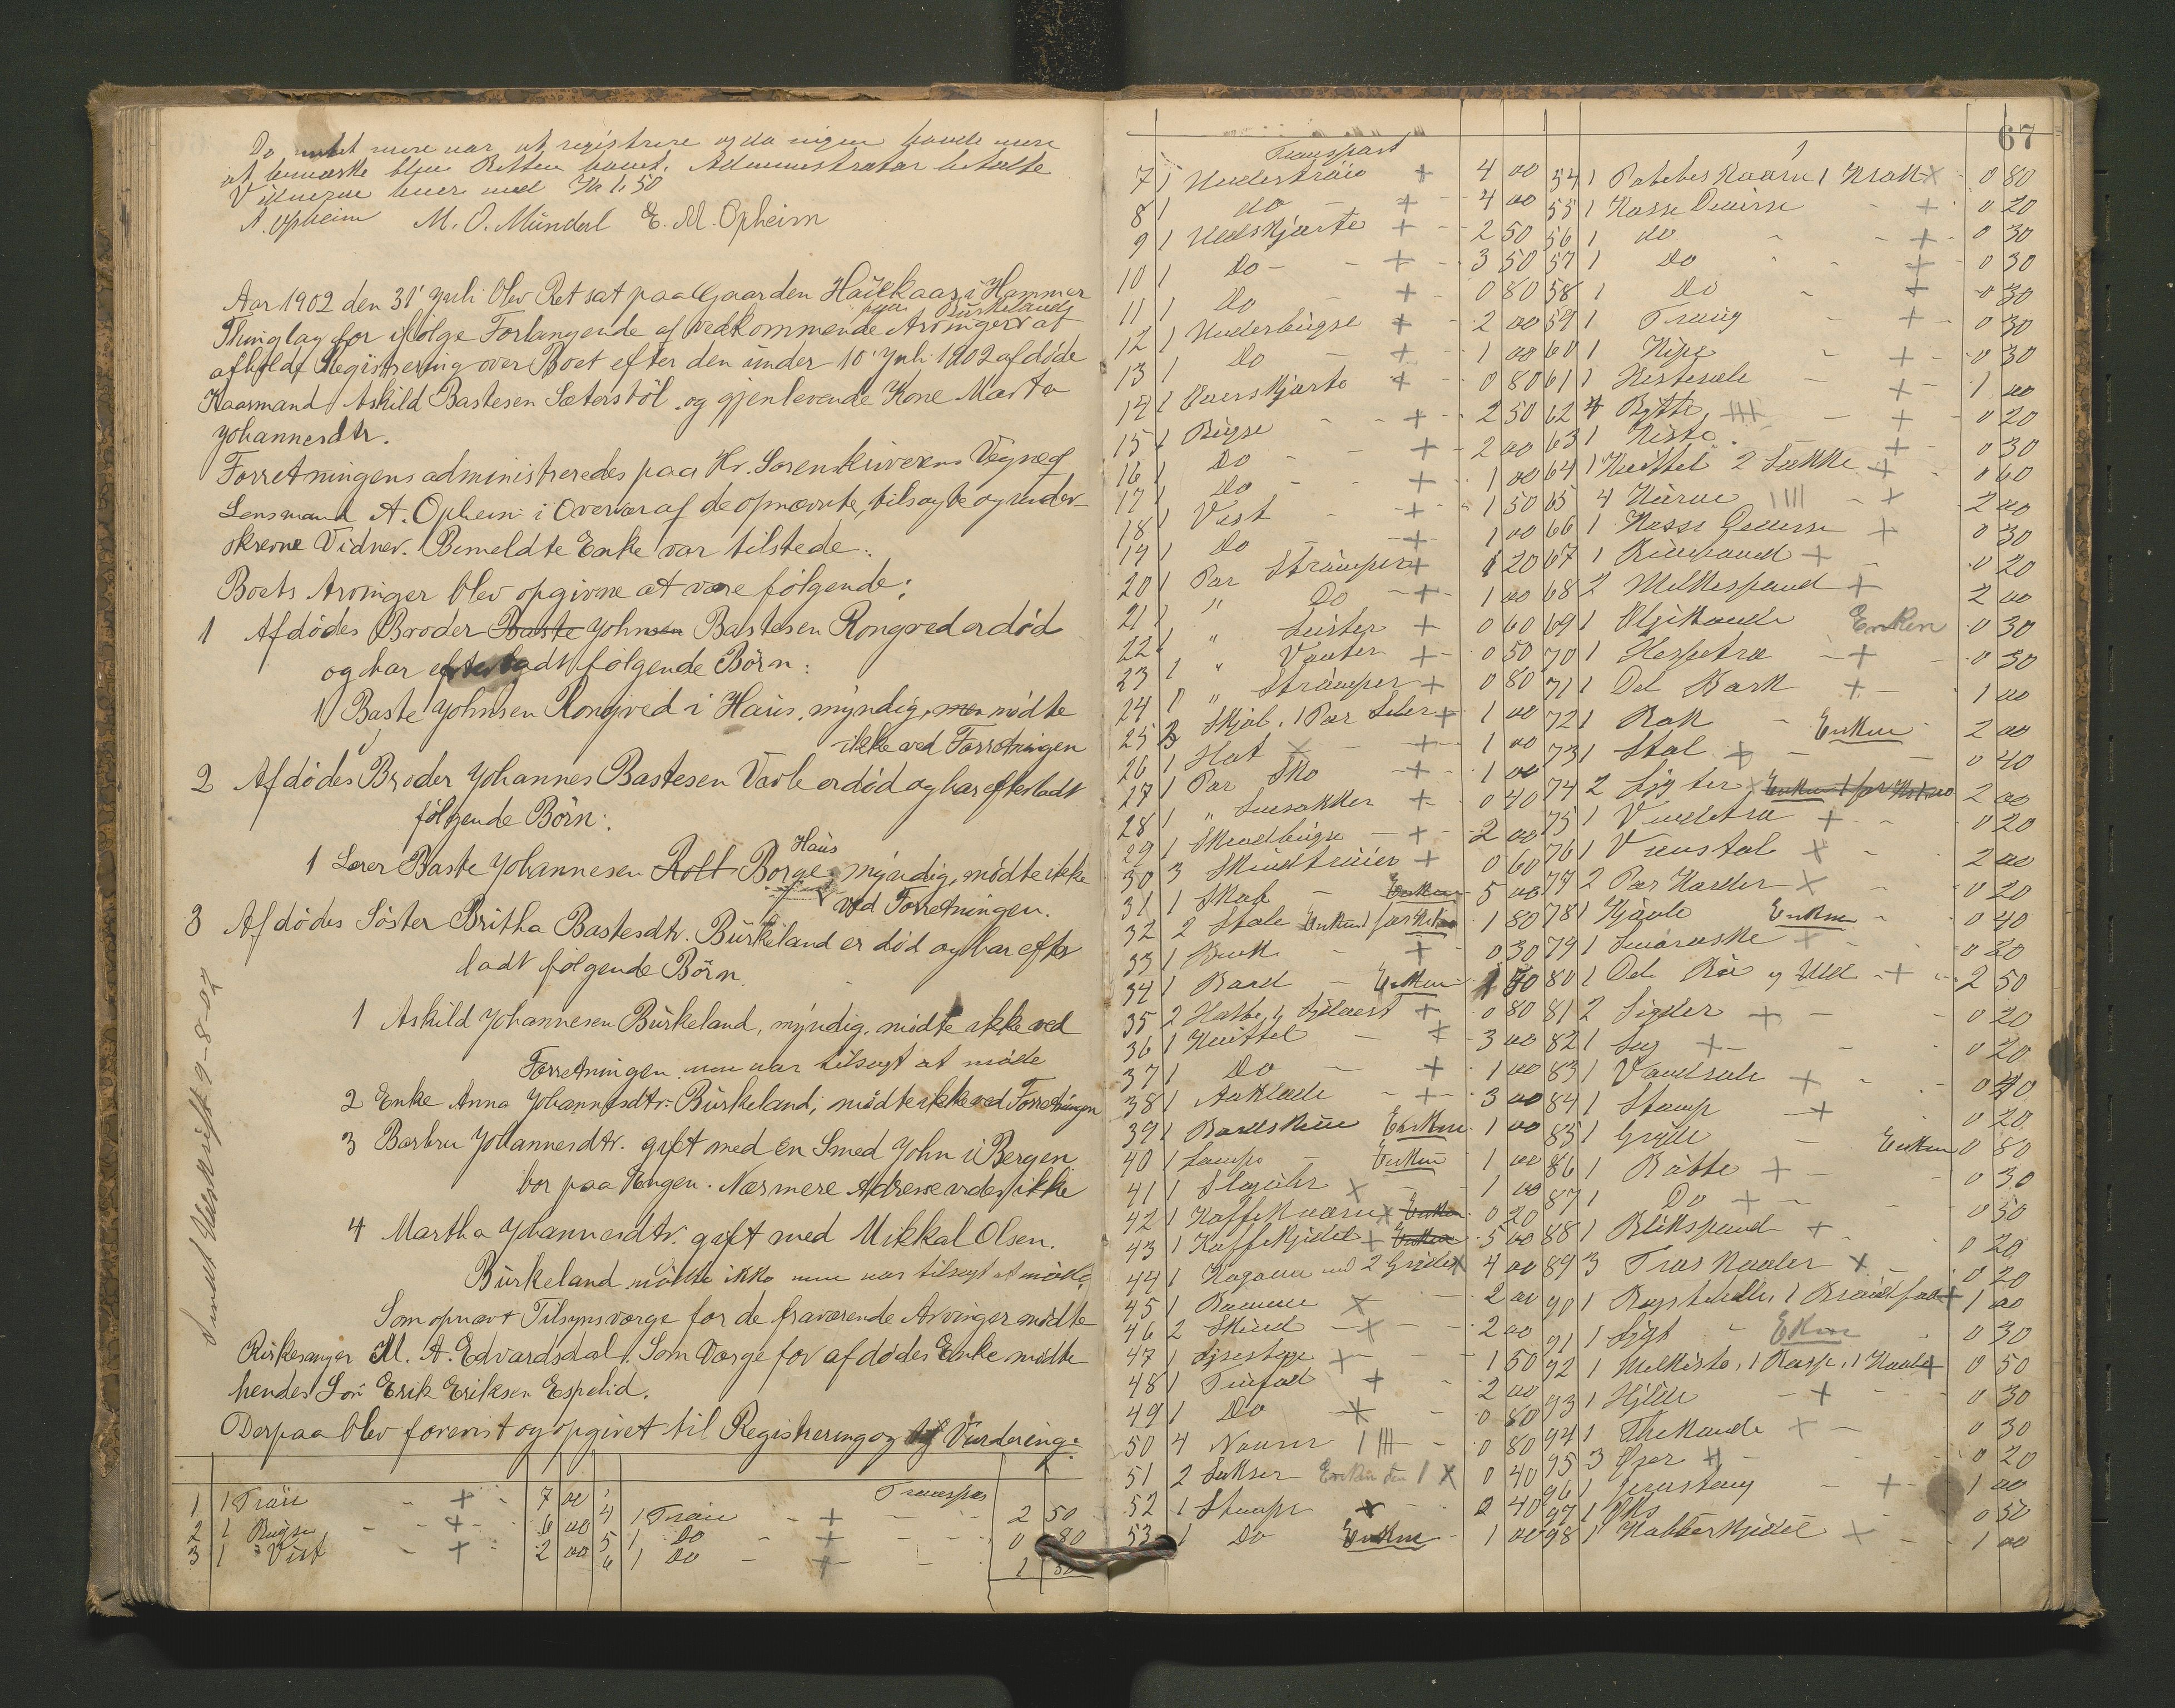 Da intet mere var at registrere og da ingen havde mere
at bemærke blev Retten hævet. Administrator betalte
Vidnerne hver med Kr 1,50
A. Opheim M. O. Mündal E. M. Opheim
Aar 1902 den 31 Juli blev Ret sat paa Gaarden Haukaas i Hammer
paa Burkelands
Thinglag for ifölge Forlangende af vedkommende Arvinger at
afholde Registrering over Boet efter den under 10 Juli 1902 afdöde
Kaarmand Askild Bastesen Sæterstöl og gjenlevende Kone Marta
Johannesdtr.
Forretningen administreredes paa Hr. Sorenskriverens Vegne af
Lensmand A. Opheim i Overvær af de opnævnte, tilsagte og under-
skrevne Vidner. Bemeldte Enke var tilstede.
Boets Arvinger blev opgivne at være fölgende:
1 Afdödes Broder Baste Johnsen Bastesen Rongved er död
og har efterladt fölgende Börn:
1 Baste Johnsen Rongved i Haus, myndig, men mödte
ikke ved Forretningen
2 Afdödes Broder Johannes Bastesen Varle er död og har efterladt
fölgende Börn:
Haus
1 Lærer Baste Johannesen Rolt Borge, myndig, mödte ikke
ved Forretningen.
3 Afdödes Söster Britha Bastesdtr. Burkeland er död og har efter
ladt fölgende Börn.
1 Askild Johannesen Burkeland, myndig, mödte ikke ved
Forretningen men var tilsagt at möde
2 Enke Anna Johannesdtr. Burkeland, mödte ikke ved Forretningen
3 Barbru Johannesdtr. gift med en Smed John i Bergen
bor paa Engen. Nærmere Adresse vides ikke
4 Martha Johannesdtr. gift med Mikkal Olsen.
Burkeland mödte ikke men var tilsagt at möde.
Som opnævt Tilsynsværge for de fraværende Arvinger mödte
Kirkesanger M. A. Edvardsdal. Som Værge for afdödes Enke mödte
hendes Sön Erik Eriksen Espelid.
Derpaa blev forevist og opgivet til Registrering og Vurdering:
Sendt Udskrift 9-8-02
Transpor
1 1 Tröie + 7 00 4 1 Tröie + 2 50
2 1 Bugse + 6 00 5 1 Do + 0 80
3 1 Vest + 2 00 6 1 Do + 1 50
67
Transport
7 1 Undertröie + 4 00 54 1 Kaarn 1 Krak x 0 80
8 1 do + 4 00 55 1 Kasse Diverse + 0 20
9 1 Uldskjorte + 2 50 56 1 do + 0 30
10 1 Do + 3 50 57 1 Do + 0 30
11 1 Do + 0 80 58 1 Do + 0 30
12 1 Underbugse + 2 00 59 1 Traug + 0 30
13 1 Do + 1 00 60 1 Kipe + 0 30
14 1 Overskjorte + 0 80 61 1 Hestesele + 1 00
15 1 Bugse + 2 50 62 4 Bötte IIII + 0 20
16 1 Do + 2 00 63 1 Kiste + 0 30
17 1 Do + 1 00 64 1 Knittel 2 Sække + 0 60
18 1 Vest + 1 50 65 4 Kurve IIII + 2 00
19 1 Do + 1 00 66 1 Kasse Diverse + 0 30
20 1 Par Strümper + 1 20 67 1 + 0 20
21 1 " Do + 1 00 68 2 Melkespand + 2 00
22 1 " Leister + 0 60 69 1 Oljekande Enken 0 30
23 1 " Vanter + 0 50 70 1 Hespetræ + 0 50
24 1 " Strümper + 0 80 71 1 Del Bark + 1 00
25 2 Skjol, 1 Par Seler + 1 00 72 1 Rok Enken 2 00
26 1 Hat x + 1 00 73 1 Stol + 0 40
27 1 Par Sko + 1 00 74 2 Lygter x Enken 2 00
28 1 " Lusekker + 0 40 75 1 + 0 20
29 1 Skindbugse + 2 00 76 1 Vævstol x 2 00
30 3 Skindtröier + 0 60 77 2 Par Karder x 0 20
31 1 Skab Enken 5 00 78 1 Kjævle Enken 0 40
32 2 Stole Enken 1 80 79 1 + 0 20
33 1 Bænk + 0 30 80 1 Del og Uld + 2 50
34 1 Bord Enken 1 50 81 2 Sigder + 0 20
35 2 Hatte, 1 Sydvest + 0 80 82 1 Sag + 0 20
36 1 Knittel + 3 00 83 1 + 0 40
37 1 Do + 1 00 84 1 Stamp + 0 20
38 1 Aaklæde + 3 00 85 1 Gryde Enken 0 80
39 1 Enken 1 00 86 1 Bötte + 0 30
40 1 Lampe Enken 1 00 87 1 Do + 0 50
41 1 Slaguhr x 1 00 88 1 Blikspand + 0 20
42 1 Kaffekværn x Enken 0 20 89 3 Træs Naaler x 0 20
43 1 Kaffekjedel + Enken 5 00 90 1 + 1 00
44 1 Kogeovn med 2 Gryder x 4 00 91 1 Lygt Enken 0 30
45 1 x 2 00 92 1 1 Rasp. + 0 50
46 2 Skind x 2 00 93 1 Hylde + 0 30
47 1 Lysestage x 1 50 94 1 Thekande x 0 30
48 1 + 2 00 95 3 Öxer + 0 20
49 1 Do x 0 80 96 1 Jernstang + 1 00
50 4 IIII 0 80 97 1 0 50
51 2 Sakser Enken den 1 x 0 40 98 1 Kobberkjedel x 1 00
52 1 Stamp x 0 40
53 1 Do Enken 1 00